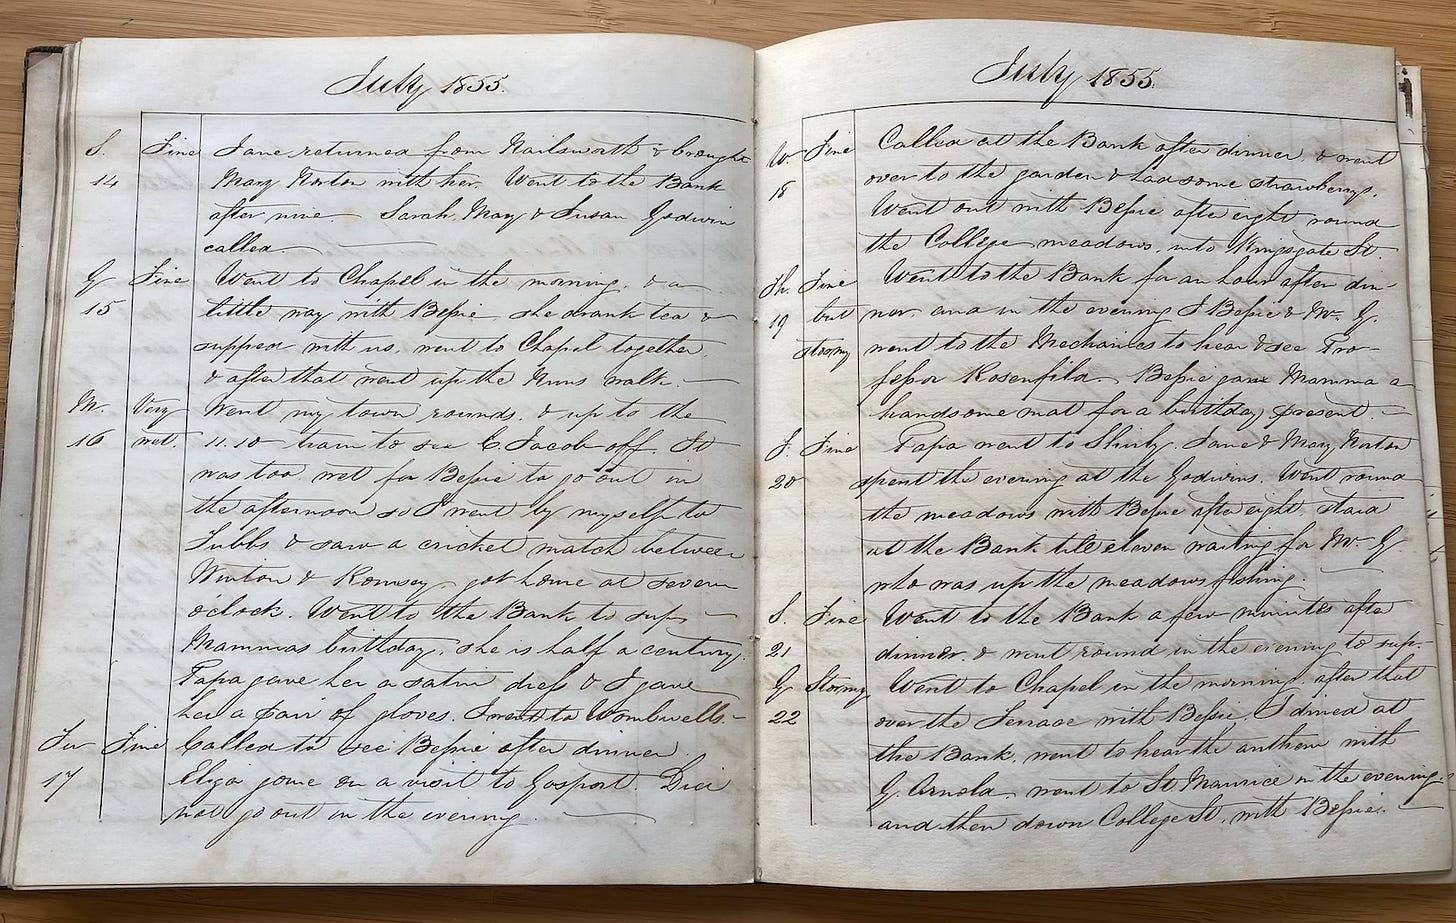 July 1855.
S. Fine Jane returned from Nailsworth & brought
14 Mary Norton with her. Went to the Bank
after nine. Sarah, Mary & Susan Godwin
called
G Fine Went to Chapel in the morning, & a
15 little way with Bessie she drank tea &
supper with us, went to Chapel together,
& after that went up the Nuns walk.
M. Very Went my town rounds, & up to the
16 wet. 11.10 train to see C. Jacob off. It
was too wet for Bessie to go out in
the afternoon so I went by myself to
Tubbs & saw a cricket match between
Winton & Romsey got home at seven
o'clock. Went to the Bank to sup
Mammas birthday, she is half a century.
Papa gave her a satin dress & I gave
her a pair of gloves. I went to Wombwells.
Tu Fine Called to see Bessie after dinner.
17 Eliza gone on a visit to Gosport. Did
not go out in the evening.
July 1855.
W. Fine Called at the Bank after dinner, & went
18 over to the garden & had some strawberrys.
Went out with Bessie after eight round
the College meadows, into Kingsgate St.
Th. Fine Went to the Bank for an hour after din-
19 but ner, and in the evening I Bessie & Mr. G.
stormy went to the Mechanics to hear & see Pro-
fessor Rosenfild. Bessie gave Mamma a
handsome mat for a birthday present.
F. Fine Papa went to Shirly. Jane & Mary Norton
20 spent the evening at the Godwins. Went round
the meadows with Bessie after eight, staid
at the Bank till eleven waiting for Mr. G.
who was up the meadows fishing.
S. Fine Went to the Bank a few minutes after
21 dinner, & went round in the evening to sup.
G Stormy Went to Chapel in the morning, after that
22 over the Terrace with Bessie. I dined at
the Bank, went to hear the anthem with
G. Arnold, went to St. Maurice in the evening
and then down College St. with Bessie.